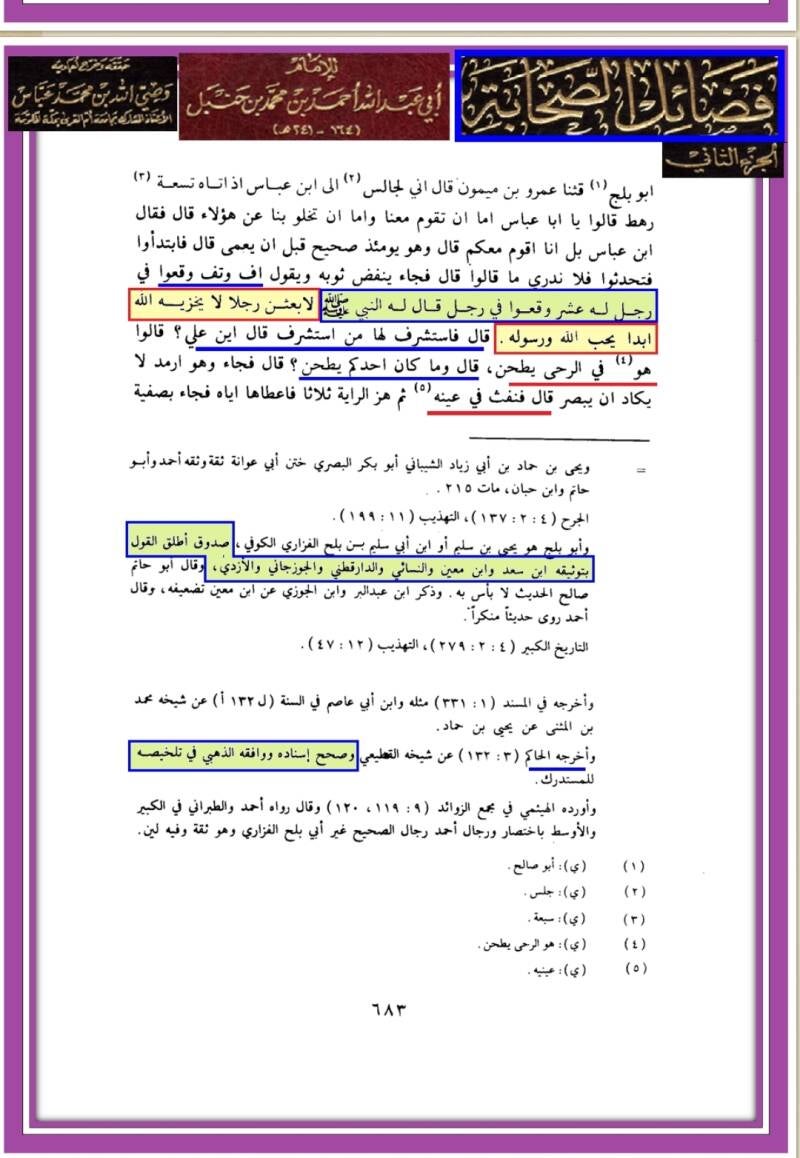 فضائل الصحابة
للإمام
أبي عبد الله أحمد بن محمد بن حنبل
(١٦٤ - ٢٤١ هـ)
حققه وخرج أحاديثه
وصي الله بن محمد عباس
الجزء الثاني
ابو بلج (١) قثنا عمرو بن ميمون قال اني لجالس (٢) الى ابن عباس اذ اتاه تسعة (٣)
رهط قالوا يا ابا عباس اما ان تقوم معنا واما ان تخلو بنا عن هؤلاء قال فقال
ابن عباس بل انا اقوم معكم قال وهو يومئذ صحيح قبل ان يعمى قال فابتدأوا
فتحدثوا فلا ندري ما قالوا قال فجاء ينفض ثوبه ويقول اف وتف وقعوا في
رجل له عشر وقعوا في رجل قال له النبي ﷺ لابعثن رجلا لا يخزيه الله
ابدا يحب الله ورسوله . قال فاستشرف لها من استشرف قال اين علي؟ قالوا
هو (٤) في الرحى يطحن، قال وما كان احدكم يطحن؟ قال فجاء وهو ارمد لا
يكاد ان يبصر قال فنفث في عينه (٥) ثم هز الراية ثلاثا فاعطاها اياه فجاء بصفية
= ويحى بن حماد بن أبي زياد الشيباني أبو بكر البصري ختن أبي عوانة ثقة وثقه أحمد وأبو
حاتم وابن حبان، مات ٢١٥ .
الجرح (٤ : ٢ : ١٣٧)، التهذيب (١١ : ١٩٩).
وأبو بلج هو يحيى بن سليم أو ابن أبي سليم بن بلج الفزاري الكوفي، صدوق أطلق القول
بتوثيقه ابن سعد وابن معين والنسائي والدارقطني والجوزجاني والأزدي، وقال أبو حاتم
صالح الحديث لا بأس به . وذكر ابن عبدالبر وابن الجوزي عن ابن معين تضعيفه، وقال
أحمد روى حديثاً منكراً .
التاريخ الكبير (٤ : ٢ : ٢٧٩)، التهذيب (١٢ : ٤٧).
وأخرجه في المسند (١ : ٣٣١) مثله وابن أبي عاصم في السنة (ل ١٣٢ أ) عن شيخه محمد
بن المثنى عن يحيى بن حماد.
وأخرجه الحاكم (٣ : ١٣٢) عن شيخه القطيعي وصحح إسناده ووافقه الذهبي في تلخيصه
للمستدرك.
وأورده الهيثمي في مجمع الزوائد (٩ : ١١٩، ١٢٠) وقال رواه أحمد والطبراني في الكبير
والأوسط باختصار ورجال أحمد رجال الصحيح غير أبي بلج الفزاري وهو ثقة وفيه لين.
(١) (ي): أبو صالح.
(٢) (ي): جلس.
(٣) (ي): سبعة.
(٤) (ي): هو الرحى يطحن.
(٥) (ي): عينيه.
٦٨٣